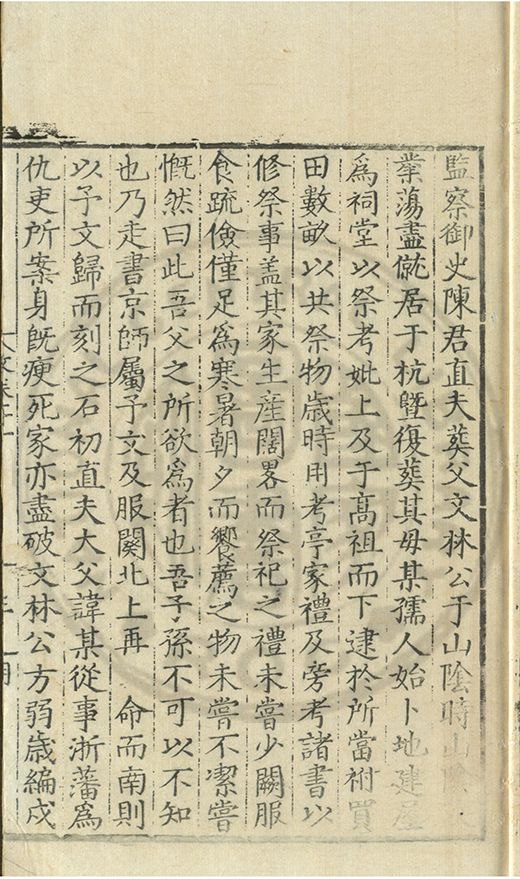 監察御史陳君直夫葬父文林公于山陰時山陰
業蕩盡僦居于杭曁復葬其母某孺人始卜地建屋
爲祠堂以祭考妣上及于高祖而下逮於所當祔買
田數畝以共祭物歳時用考亭家禮及旁考諸書以
修祭事盖其家生産闊畧而祭祀之禮未嘗少闕服
食疏儉僅足爲寒暑朝夕而饗薦之物未嘗不潔嘗
慨然曰此吾父之所欲爲者也吾子孫不可以不知
也乃走書京師屬予文及服闋北上再 命而南則
以予文歸而刻之石初直夫大父諱某從事浙藩爲
仇吏所案身旣瘐死家亦盡破文林公方弱歳編戍